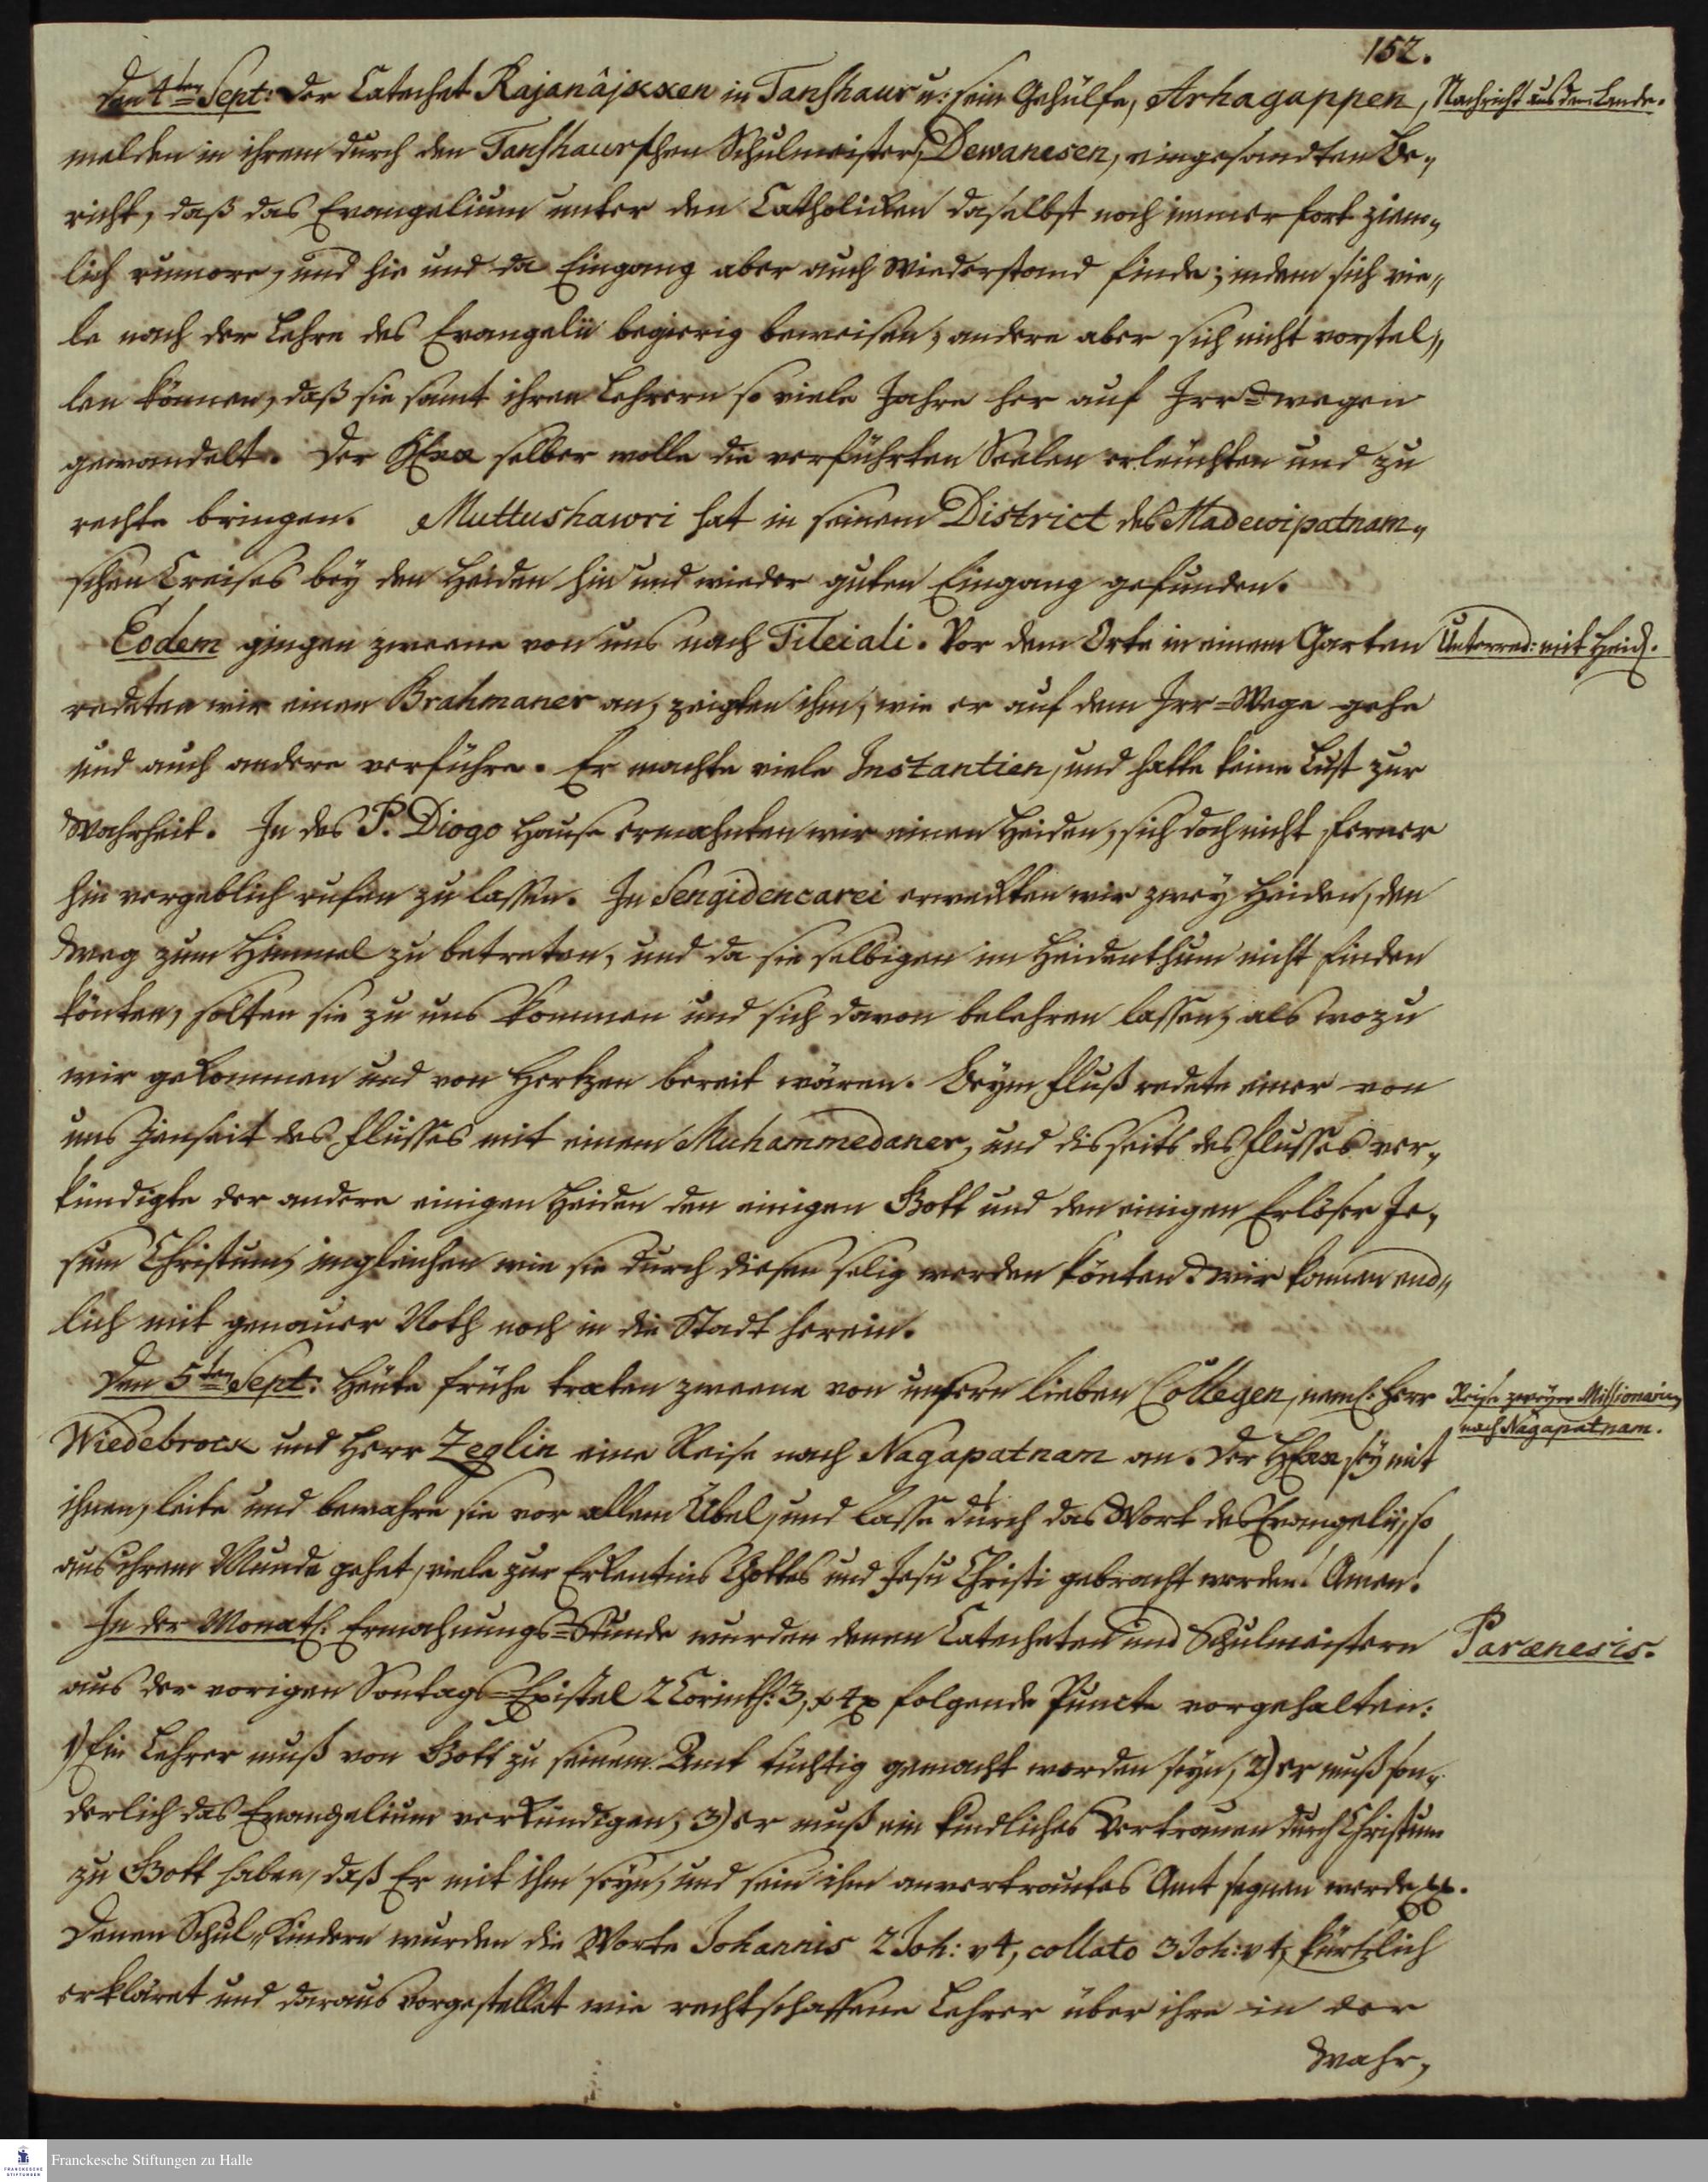 152.
Den 4ten Sept: Der Catechet Rajanâjkken in Tanshaur u: sein Gehülfe, Arhagappen,
Nachricht aus dem Lande.
melden in ihrem durch den Tanshaurschen Schulmeister, Dewanesen, eingesandten Be-
richt, daß das Evangelium unter den Catholicken daselbst noch immer fort ziem-
lich rumore, und hie und da Eingang aber auch Wiederstand finde; indem sich vie-
le nach der Lehre des Evangelii begierig beweisen, andere aber sich nicht vorstel-
len können, daß sie samt ihren Lehrern so viele Jahre her auf Irr-wegen
gewandelt. Der HErr selber wolle die verführten Seelen erleuchten und zu
rechte bringen. Muttushawri hat in seinem District des Madewipatnam-
schen Creises bey den Heiden hin und wieder guten Eingang gefunden.
Eodem gingen zweene von uns nach Tileiali. Vor dem Orte in einem Garten
Unterred: mit Heid.
redeten wir einen Brahmaner an, zeigten ihm, wie er auf dem Irr-Wege gehe
und auch andere verführe. Er machte viele Instantien, und hatte keine Lust zur
Wahrheit. In des P. Diogo Hause ermahnten wir einen Heiden, sich doch nicht ferner
hin vergeblich rufen zu lassen. In Sengidencarei erweckten wir zwey Heiden, den
Weg zum Himmel zu betreten, und da sie selbigen im Heidenthum nicht finden
könten, solten sie zu uns kommen und sich davon belehren lassen, als wozu
wir gekommen und von Hertzen bereit wären. Beym Fluß redete einer von
uns jenseit des Flusses mit einem Muhammedaner, und disseits des Flusses ver-
kündigte der andere einigen Heiden den einigen Gott und den einigen Erlöser Je-
sum Christum, ingleichen wie sie durch diesen selig werden könten. Wir kamen end-
lich mit genauer Noth noch in die Stadt herein.
Den 5ten Sept: Heute frühe traten zweene von unsern lieben Collegen, neml: Herr
Reise zweyer Missionarien
nach Nagapatnam.
Wiedebrock und Herr Zeglin eine Reise nach Nagapatnam an. Der HErr sey mit
ihnen, leite und bewahre sie vor allem Übel, und lasse durch das Wort des Evangelii, so
aus ihrem Munde gehet, viele zur Erkentnis Gottes und Jesu Christi gebracht werden! Amen!
In der Monatl: Ermahnungs-Stunde wurden denen Catecheten und Schulmeistern
Parænesis.
aus der vorigen Sontags-Epistel 2 Corinth: 3, v 4 folgende Puncte vorgehalten:
1) Ein Lehrer muß von Gott zu seinem Amt tüchtig gemacht worden seyn, 2) er muß son-
derlich das Evangelium verkündigen, 3) er muß ein kindliches Vertrauen durch Christum
zu Gott haben, daß Er mit ihm seyn, und sein ihm anvertrautes Amt segnen werde
Denen Schul-Kindern wurden die Worte Johannis 2 Joh: v 4, collato 3 Joh: v 4, kürtzlich
erkläret und daraus vorgestellet wie rechtschaffene Lehrer über ihre in der
Wahr-
Franckesche Stiftungen zu Halle
FRANCKESCHE
STIFTUNGEN